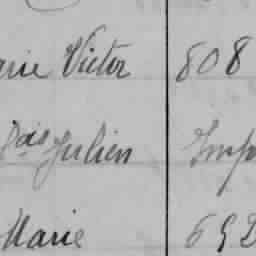 arie Victor 808
Dois Julien Imp
Marie 692